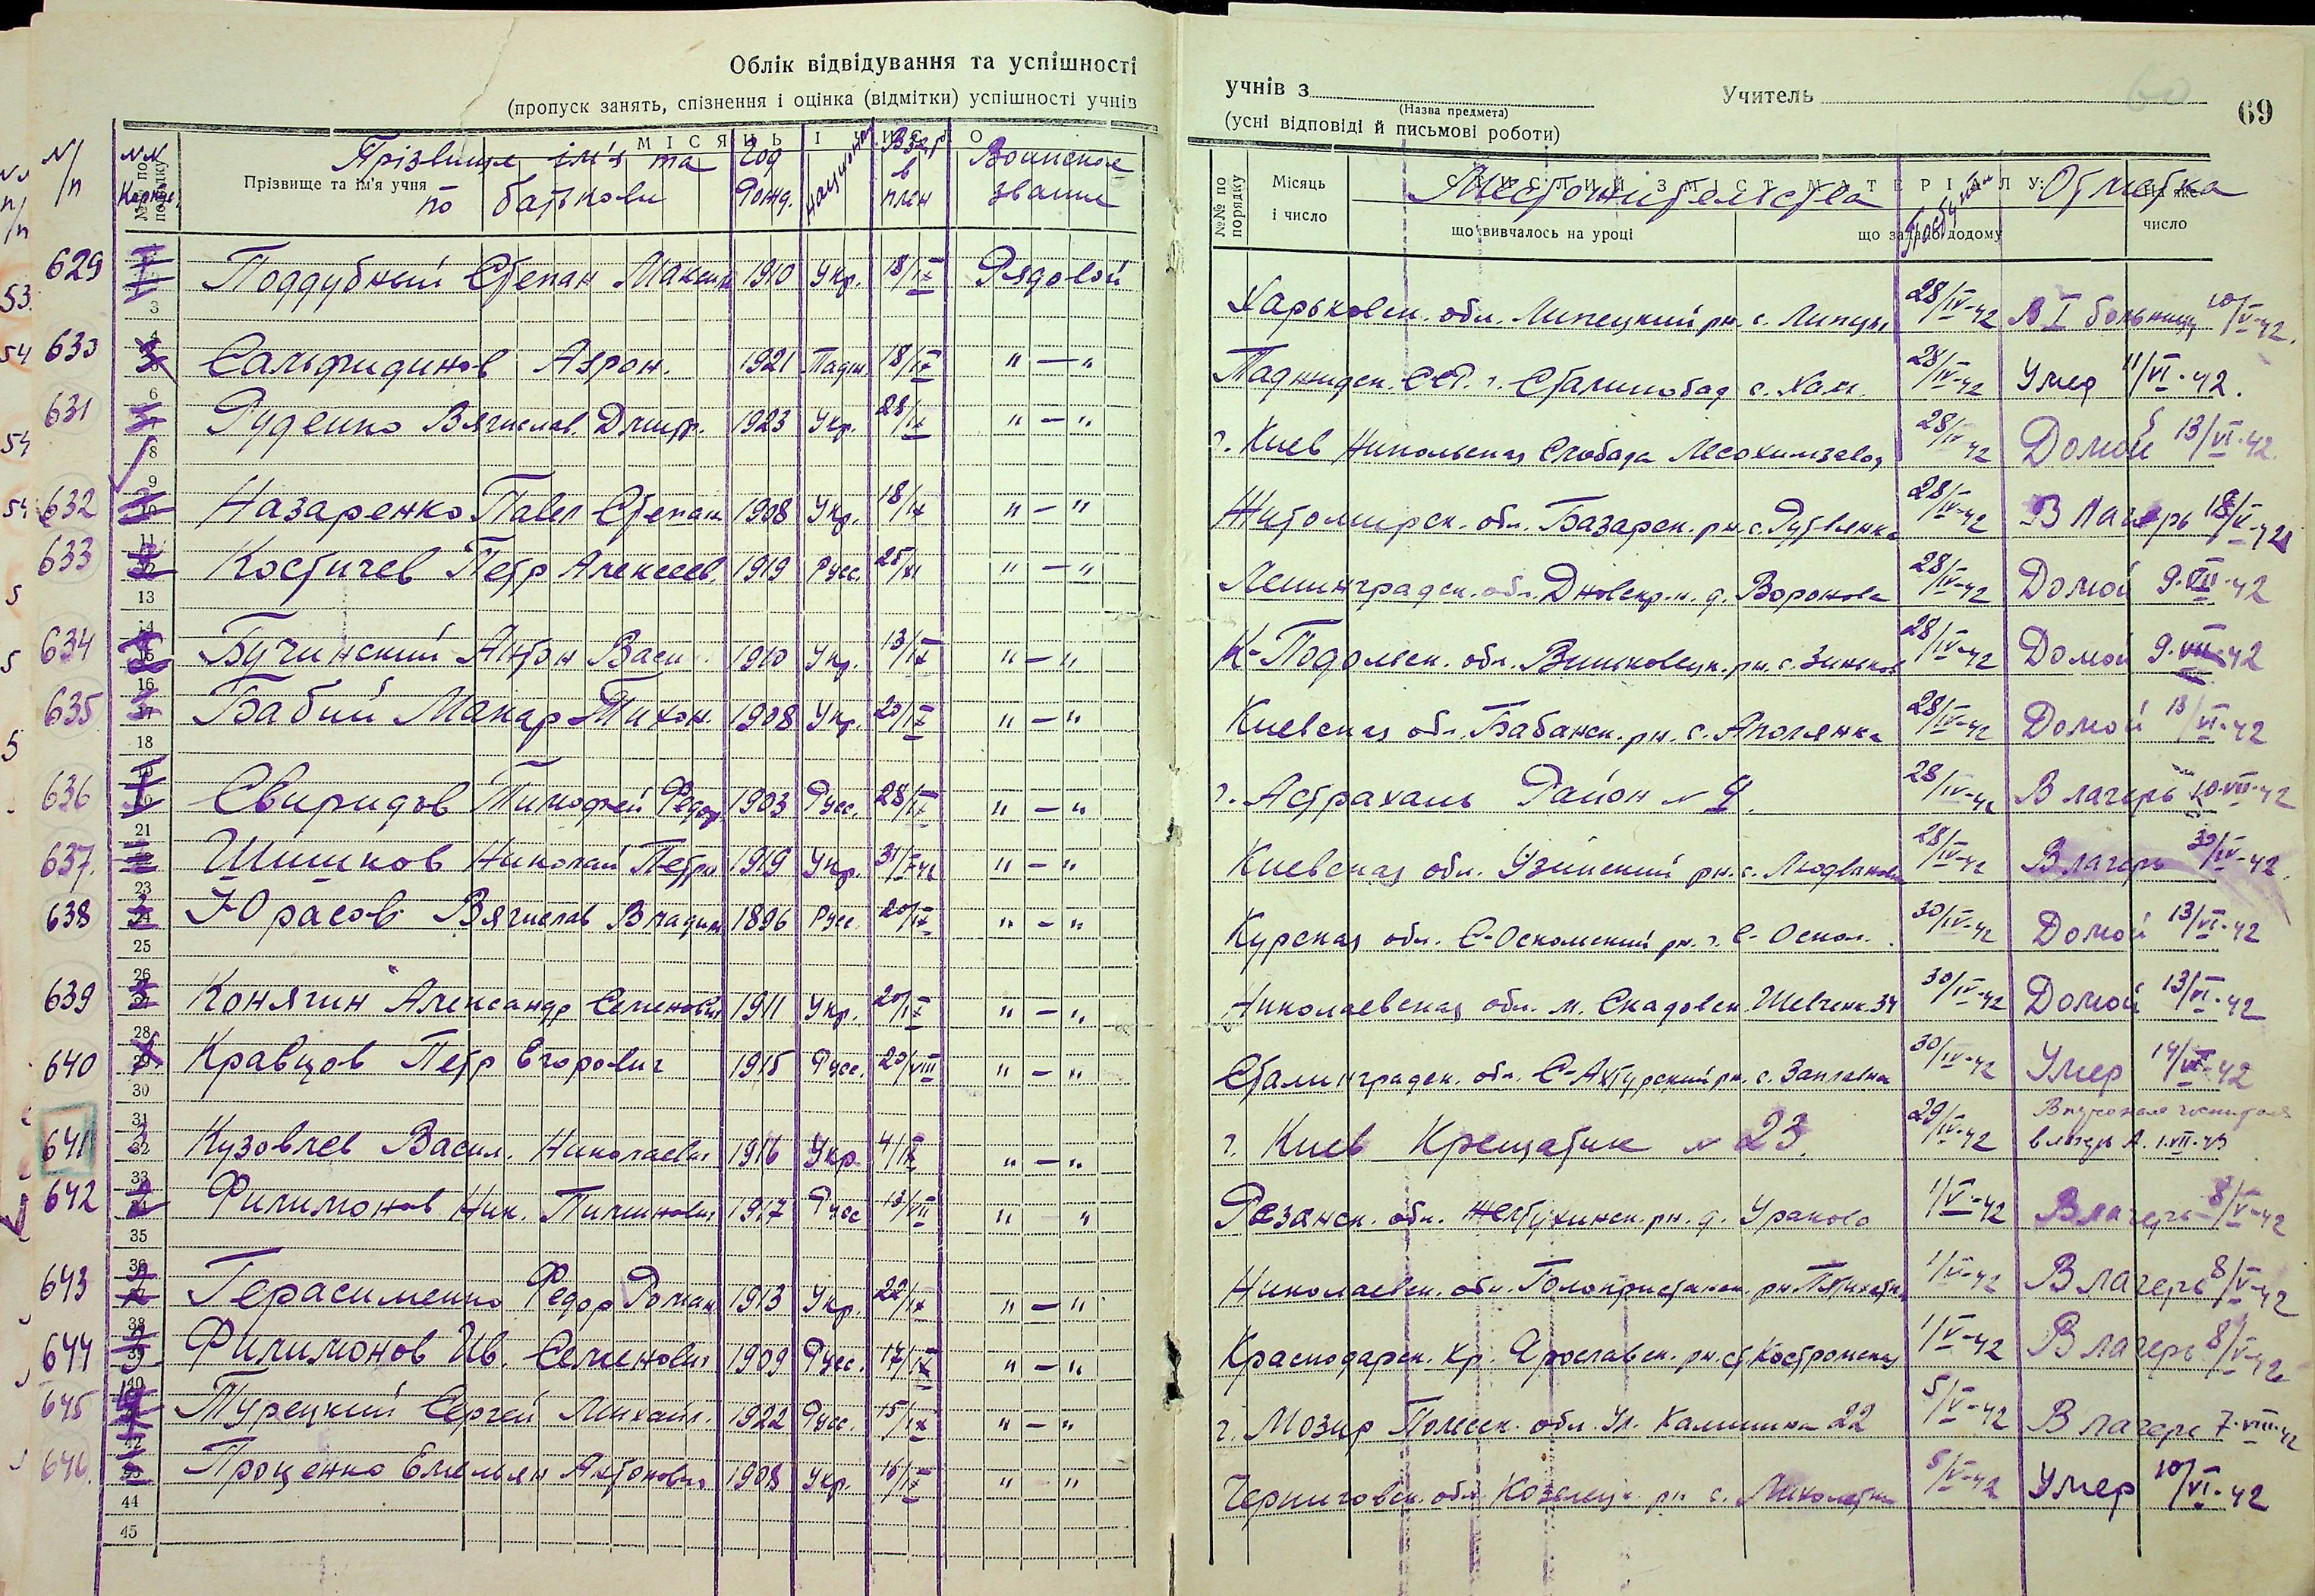 Облік відвідування та успішності
(пропуск занять, спізнення і оцінка (відмітки) успішності учнів
учнів з
(Назва предмета)
Учитель
69
(усні відповіді й письмові роботи)
N/п
NN
МІСЯЦЬ І ЧИСЛО
№№ по порядку
Прізвище та ім'я учня
Прізвище ім'я та по батькови
Год рожд.
национал
Взят в плен
Воинское звание
№№ по порядку
Місяць і число
СТИСЛИЙ ЗМІСТ МАТЕРІАЛУ:
що вивчалось на уроці
що задано додому
На яке число
Местожительства
Отметка
629 Поддубный Степан Максим 1910 Укр. 18/IX Рядовой Харьковск. обл. Липецкий рн. с. Липцы 28/IV-42 В I больницу 10/V-42.
630 Сальфидинов Азрон. 1921 Тадж 18/IX "—" Таджикск. ССР. г. Сталинобад с. 28/IV-42 Умер 11/VI-42.
631 Руденко Вячислав. Дмитр. 1923 Укр. 28/IX "—" г. Киев Никольская Слобода Лесохимзавод 28/IV-42 Домой 13/VI-42.
632 Назаренко Павел Степан 1908 Укр. 18/IX "—" Житомирск. обл. Базарск. рн. с. 28/IV-42 В лагерь 18/V-42
633 Костичев Петр Алексеев. 1919 Русс. 25/XI "—" Ленинградск. обл. Дновск р-н. д. Воронова 28/IV-42 Домой 9-VII-42
634 Бучинский Антон Васил. 1910 Укр. 13/IX "—" К-Подольск. обл. Виньковецк. рн. с. Зиньков 28/IV-42 Домой 9-VII-42
635 Бабий Макар Тихон. 1908 Укр. 20/IX "—" Киевская обл. Бабанск. рн. с. Аполянка 28/IV-42 Домой 13/VI-42
636 Свиридов Тимофей Федор 1903 Русс. 28/IX "—" г. Астрахань Район N 9. 28/IV-42 В лагерь 10-VII-42
637. Шишков Николай Петр 1919 Укр. "—" Киевская обл. Узинский рн. с. 28/IV-42 В лагерь 30/IV-42.
638 Юрасов Вячислав Владим 1896 Русс. 20/IX "—" Курская обл. С-Оскольский рн. г. С-Оскол. 30/IV-42 Домой 13/VI-42
639 Конягин Александр Семенович 1911 Укр. 20/IX "—" Николаевская обл. м. Скадовск Шевченк. 34 30/IV-42 Домой 13/VI-42
640 Кравцов Петр Егорович 1915 Русс. 20/VIII "—" Сталинградск. обл. С-Ахтурский рн. с. Заплавна 30/IV-42 Умер
641 Кузовлев Васил. Николаевич 1916 Укр. 4/IX "—" г. Киев Крещатик N 23. 29/IV-42
642 Филимонов Ник. 1917 Русс 13/VIII " " Рязанск. обл. рн. д. Ураково 1/V-42 В лагерь 8/V-42
643 Герасименко Федор Роман 1913 Укр. 22/IX "—" Николаевск. обл. Голопристанск. рн. 1/V-42 В лагерь 8/V-42
644 Филимонов Ив. Семенович 1909 Русс. 17/IX "—" Краснодарск. кр. Ярославск. рн. ст. Костромская 1/V-42 В лагерь 8/V-42
645 Турецкий Сергей Михайл. 1922 Русс. 15/IX "—" г. Мозир Полесск. обл. Ул. Калинина 22 5/V-42 В лагерь 7-VIII-42
646. Проценко Емельян Антонович 1908 Укр. 16/IX " " Черниговск. обл. Козелецк. рн с. 5/V-42 Умер 10/VI-42